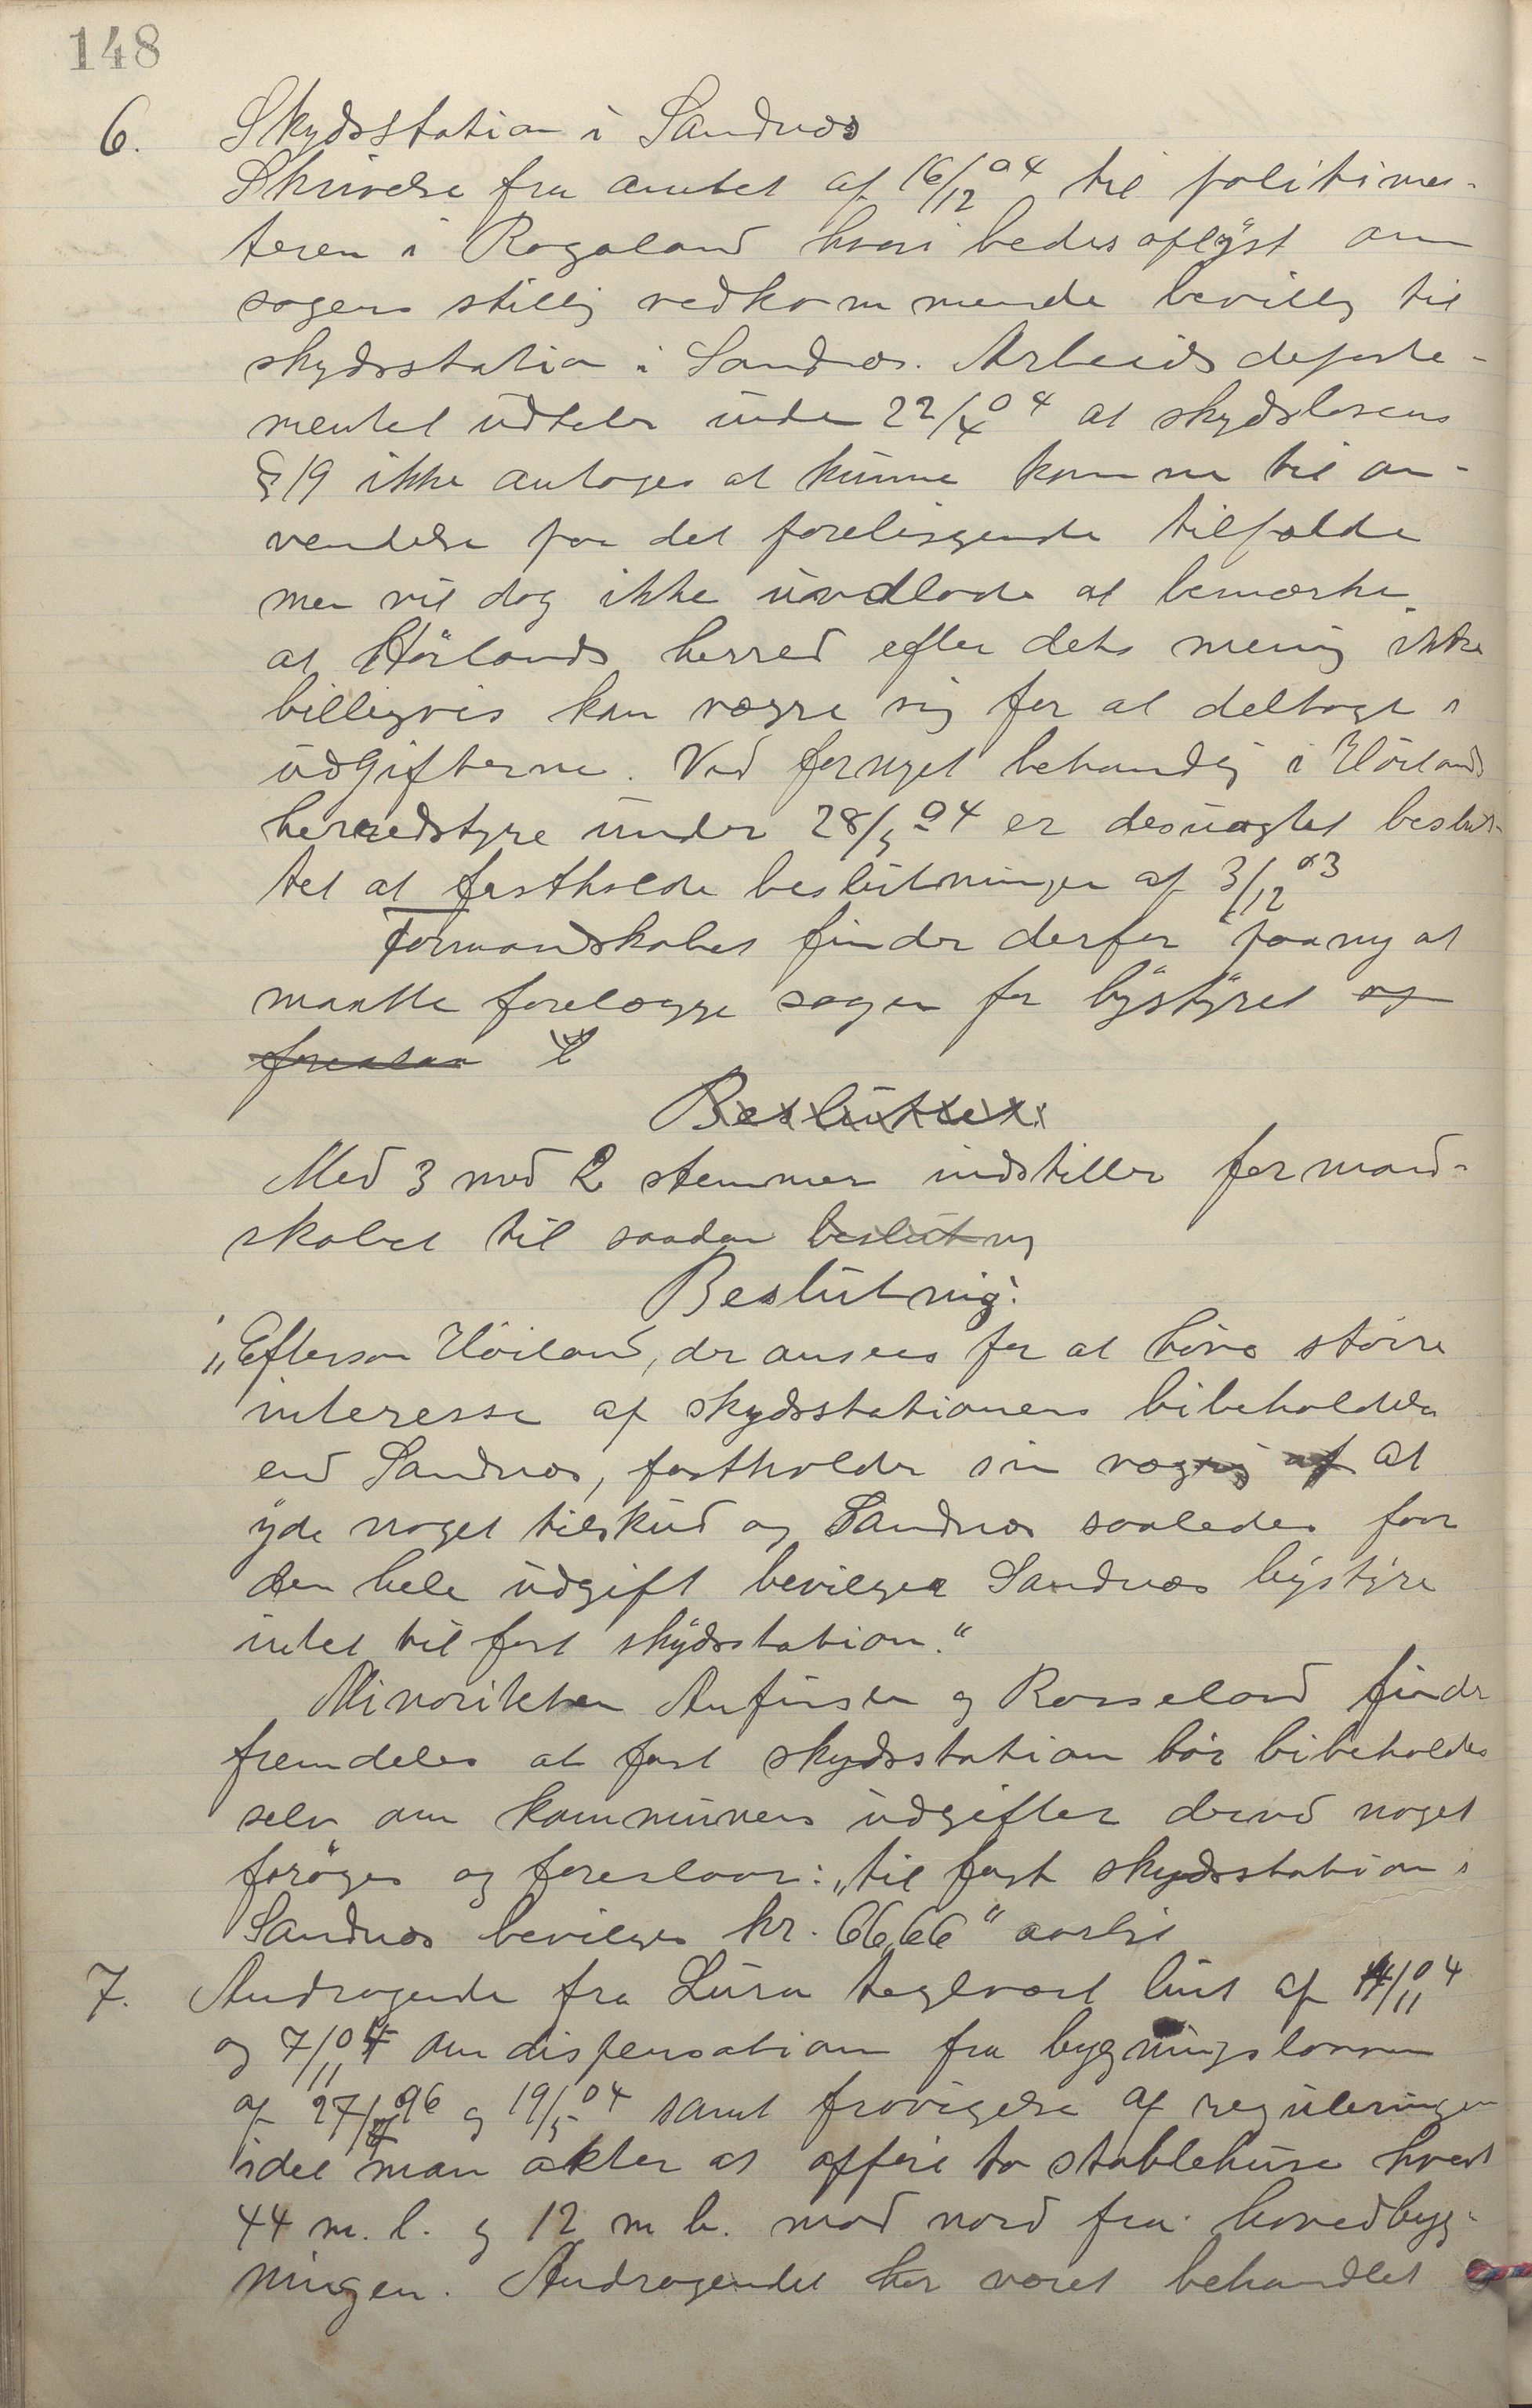 148
6. Skydsstation i Sandnæs
Skrivelse fra amtet af 16/12 04 til politimes-
teren i Rogaland hvori bedes oplyst om
sagens stillg vedkommende bevillg til
skydsstation i Sandnæs. Arbeidsdeparte-
mentet udtaler under 22/4 04 at skydslovens
§ 19 ikke antages at kunne komme til an-
vendelse paa det foreliggende tilfælde
men vil dog ikke undlade at bemærke
at Höilands herred efter dets mening ikke
billigvis kan vægre sig for at deltage i
udgifterne. Ved fornyet behandlg i Höilands
herredstyre under 28/5 04 er desuagtet beslut-
tet at fastholde beslutningen af 3/12 03
Formandskabet finder derfor paany at
maatte forelægge sagen for bystyret og
foreslaa
Besluttet:
Med 3 mod 2 stemmer indstiller formand-
skabet til saadan beslutng
Beslutnig:
„Eftersom Höiland, der ansees for at have större
interesse af skydsstationens bibeholdelse
end Sandnæs, fastholder sin vægrig af at
yde noget tilskud og Sandnæs saaledes faar
den hele udgift bevilger Sandnæs bystyre
intet til fast skydsstation.“
Minoriteten Anfinsen og Rosseland finder
fremdeles at fast skydsstation bör bibeholdes
selv om kommunens udgifter derved noget
foröges og foreslaar: „til fast skydsstation i
Sandnæs bevilges kr. 66,66“ aarligt
7. Andragende fra Lura teglværk af 4/11 04
og 7/11 04 om dispensation fra bygningsloven
af 27/ 96 og 19/5 04 samt fravigelse af reguleringen
idet man akter at opföre to stablehuse hvert
44 m. l. og 12 m b. mod nord fra hovedbyg-
ningen. Andragendet har været behandlet